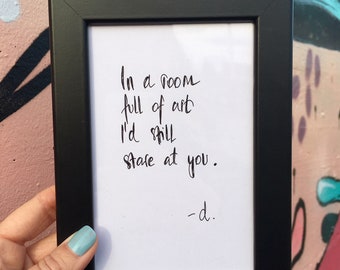 In a room
full of art
I'd still
stare at you.
-d.